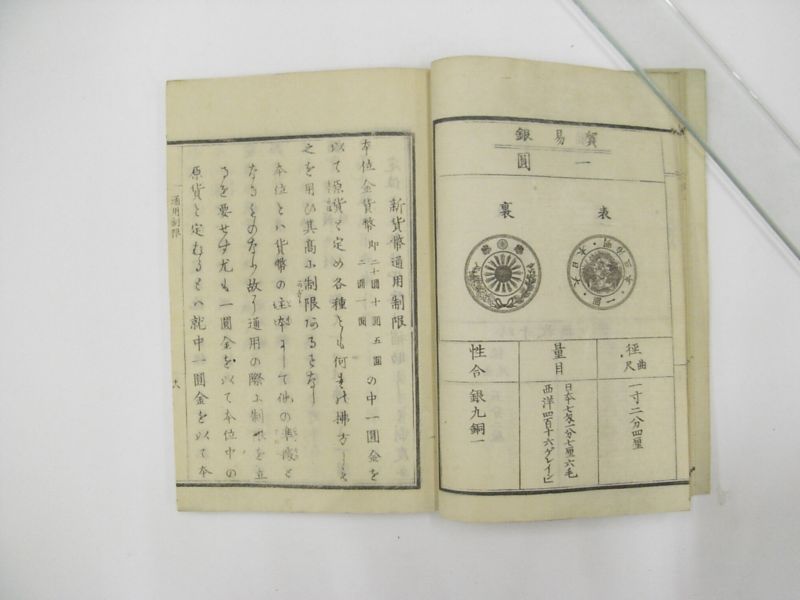 貿易銀
一圓
表
裏
徑曲尺
一寸二分四厘
量目
日本七匁二分七厘六毛
西洋四百十六ゲレイン
性合
銀九銅一
新貨幣通用制限
本位金貨幣即二十圓十圓五圓二圓一圓の中一圓金を
以て原貨と定め各種とも何れの拂方にも
之を用ひ其高に制限あることなし
本位とハ貨幣の主本にして他の準據と
なるものなり故に通用の際に制限を立
るを要せす尤も一圓金を以て本位中の
原貨と定むるとハ就中一圓金を以て本
通用制限